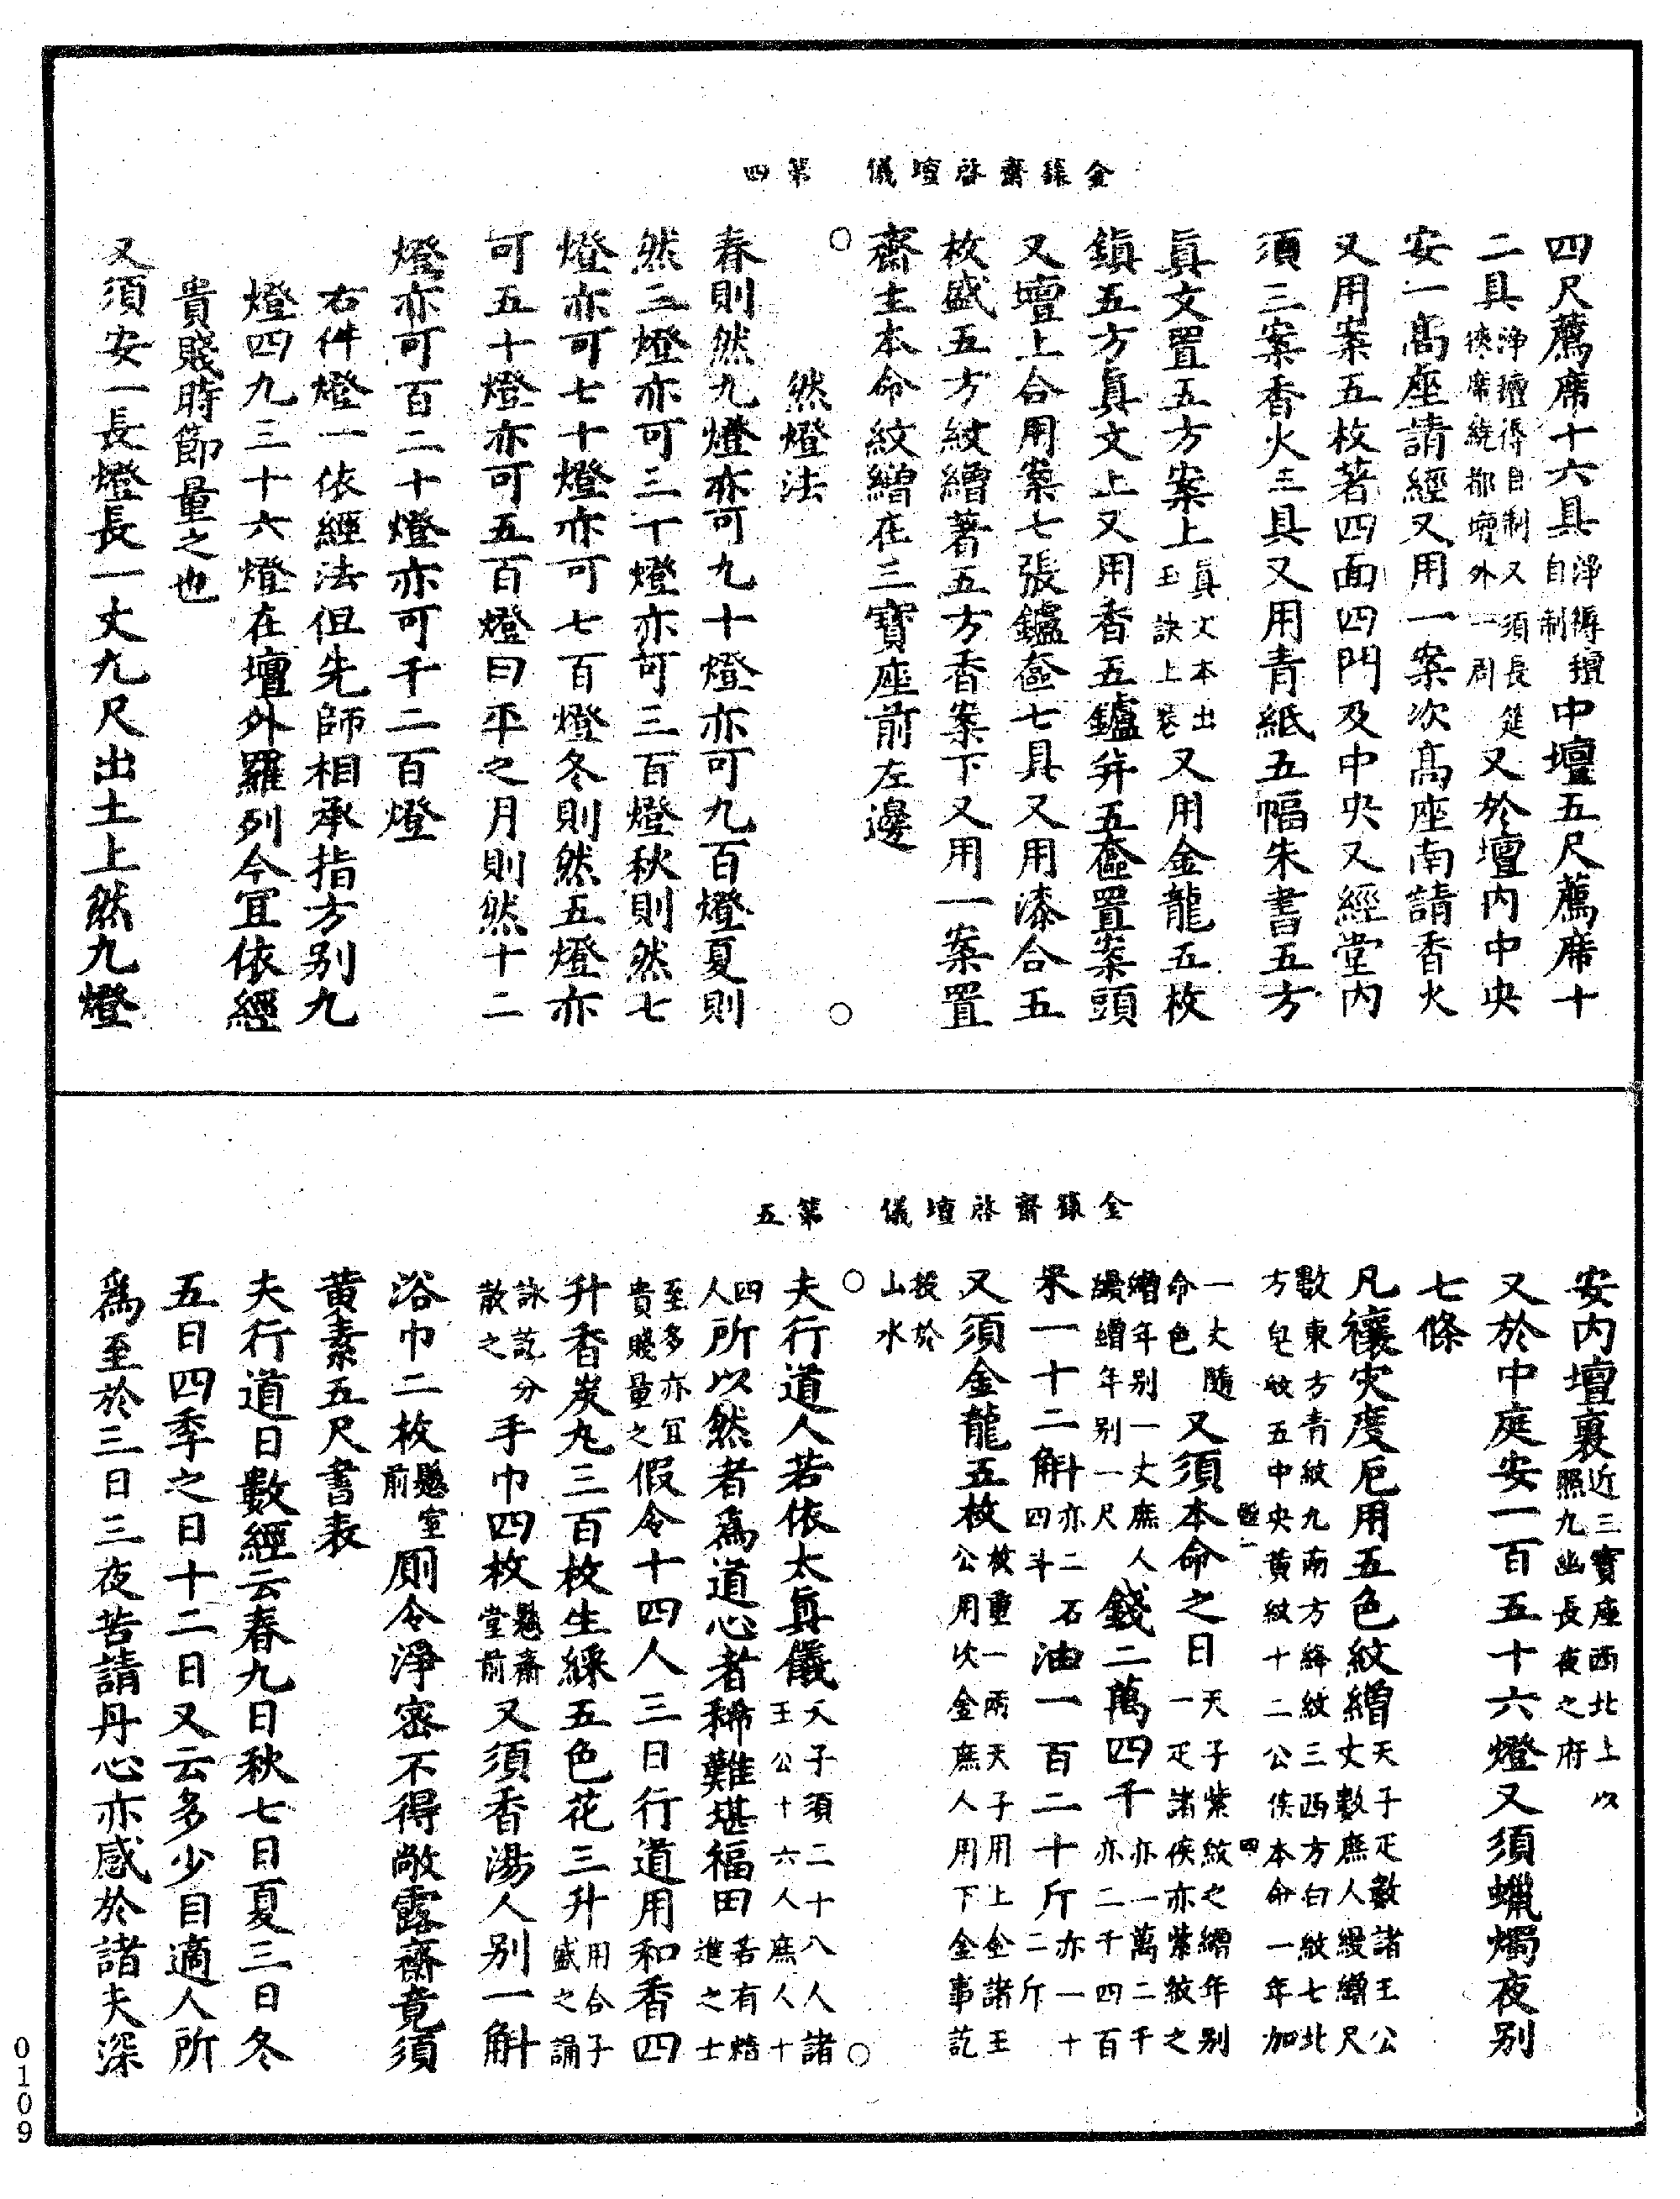 金籙齋啓壇儀　第四
四尺薦席十六具淨褥壇自制中壇五尺薦席十
二具淨壇得自制又須長筵俠席繞都壇外一周又於壇内中央
安一髙座請經又用一案次髙座南請香火
又用案五枚著四面四門及中央又經堂内
須三案香火三具又用青紙五幅朱書五方
眞文置五方案上眞文本出玉訣上卷又用金龍五枚
鎮五方眞文上又用香五鑪并五奩置案頭
又壇上合用案七張鑪奩七具又用漆合五
枚盛五方紋繒著五方香案下又用一案置
齋主本命紋繒在三寶座前左邊
○　○
然燈法
春則然九燈亦可九十燈亦可九百燈夏則
然三燈亦可三十燈亦可三百燈秋則然七
燈亦可七十燈亦可七百燈冬則然五燈亦
可五十燈亦可五百燈曰平之月則然十二
燈亦可百二十燈亦可千二百燈
右件燈一依經法但先師相承指方别九
燈四九三十六燈在壇外羅列今冝依經
貴賤時節量之也
又須安一長燈長一丈九尺出土上然九燈
金籙齋啓壇儀　第五
安内壇裏近三寶座西北上以照九幽長夜之府
又於中庭安一百五十六燈又須蠟燭夜别
七條
凡禳灾度厄用五色紋繒天子疋數諸王公丈數庶人縵繒尺
數東方青紋九南方絳紋三西方白紋七北方皂紋五中央黄紋十二公侯本命一年加
一丈隨命色又須本命之日天子紫紋之繒年别一疋諸侯亦紫紋之
繒年别一丈庶人縵繒年别一尺錢二萬四千亦一萬二千亦二千四百
米一十二斛亦二石四斗油一百二十斤亦一十二斤
又須金龍五枚枚重一兩天子用上金諸王公用次金庶人用下金事訖
投於山水
○　○
夫行道人若依太眞儀天子須二十八人諸王公十六人庶人十
四人所以然者爲道心者稀難堪福田若有精進之士
至多亦冝貴賤量之假令十四人三日行道用和香四
升香炭丸三百枚生綵五色花三升用合子盛之誦
詠訖分散之手巾四枚懸齋堂前又須香湯人别一斛
浴巾二枚懸室前厠令淨密不得敞露齋竟須
黄素五尺書表
夫行道日數經云春九日秋七日夏三日冬
五日四季之日十二日又云多少自適人所
爲至於三日三夜苦請丹心亦感於諸夫深
0109